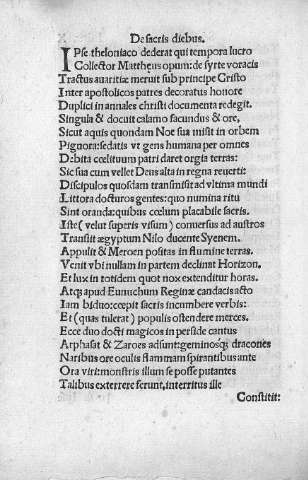 De sacris diebus.
IPse theloniaco dederat qui tempora lucro
Collector Mattheus opum: de syrte voracis
Tractus auaritiæ meruit sub principe Cristo
Inter apostolicos patres decoratus honore
Duplici in annales christi documenta redegit.
Singula & docuit calamo facundus & ore,
Sicut aquis quondam Noe sua misit in orbem
Pignora: sedatis vt gens humana per omnes
Debita cœlituum patri daret orgia terras:
Sic sua cum vellet Deus alta in regna reuerti:
Discipulos quosdam transmisit ad vltima mundi
Littora docturos gentes: quo numina ritu
Sint oranda: quibus cœlum placabile sacris.
Iste (velut superis visum) conuersus ad austros
Transiit ægyptum Nilo ducente Syenem.
Appulit & Meroen positas in flumine terras.
Venit vbi nullam in partem declinat Horizon.
Et lux in totidem quot nox extenditur horas.
Atq; apud Eunuchum Reginæ candacis acto
Iam biduo: cœpit sacris incumbere verbis:
Et (quas tulerat) populis ostendere merces.
Ecce duo docti magicos in perside cantus
Arphasat & Zaroes adsunt: geminosq; dracones
Naribus ore oculis flammam spirantibus ante
Ora viri: monstris illum se posse putantes
Talibus exterrere ferunt, interritus ille
Constitit: